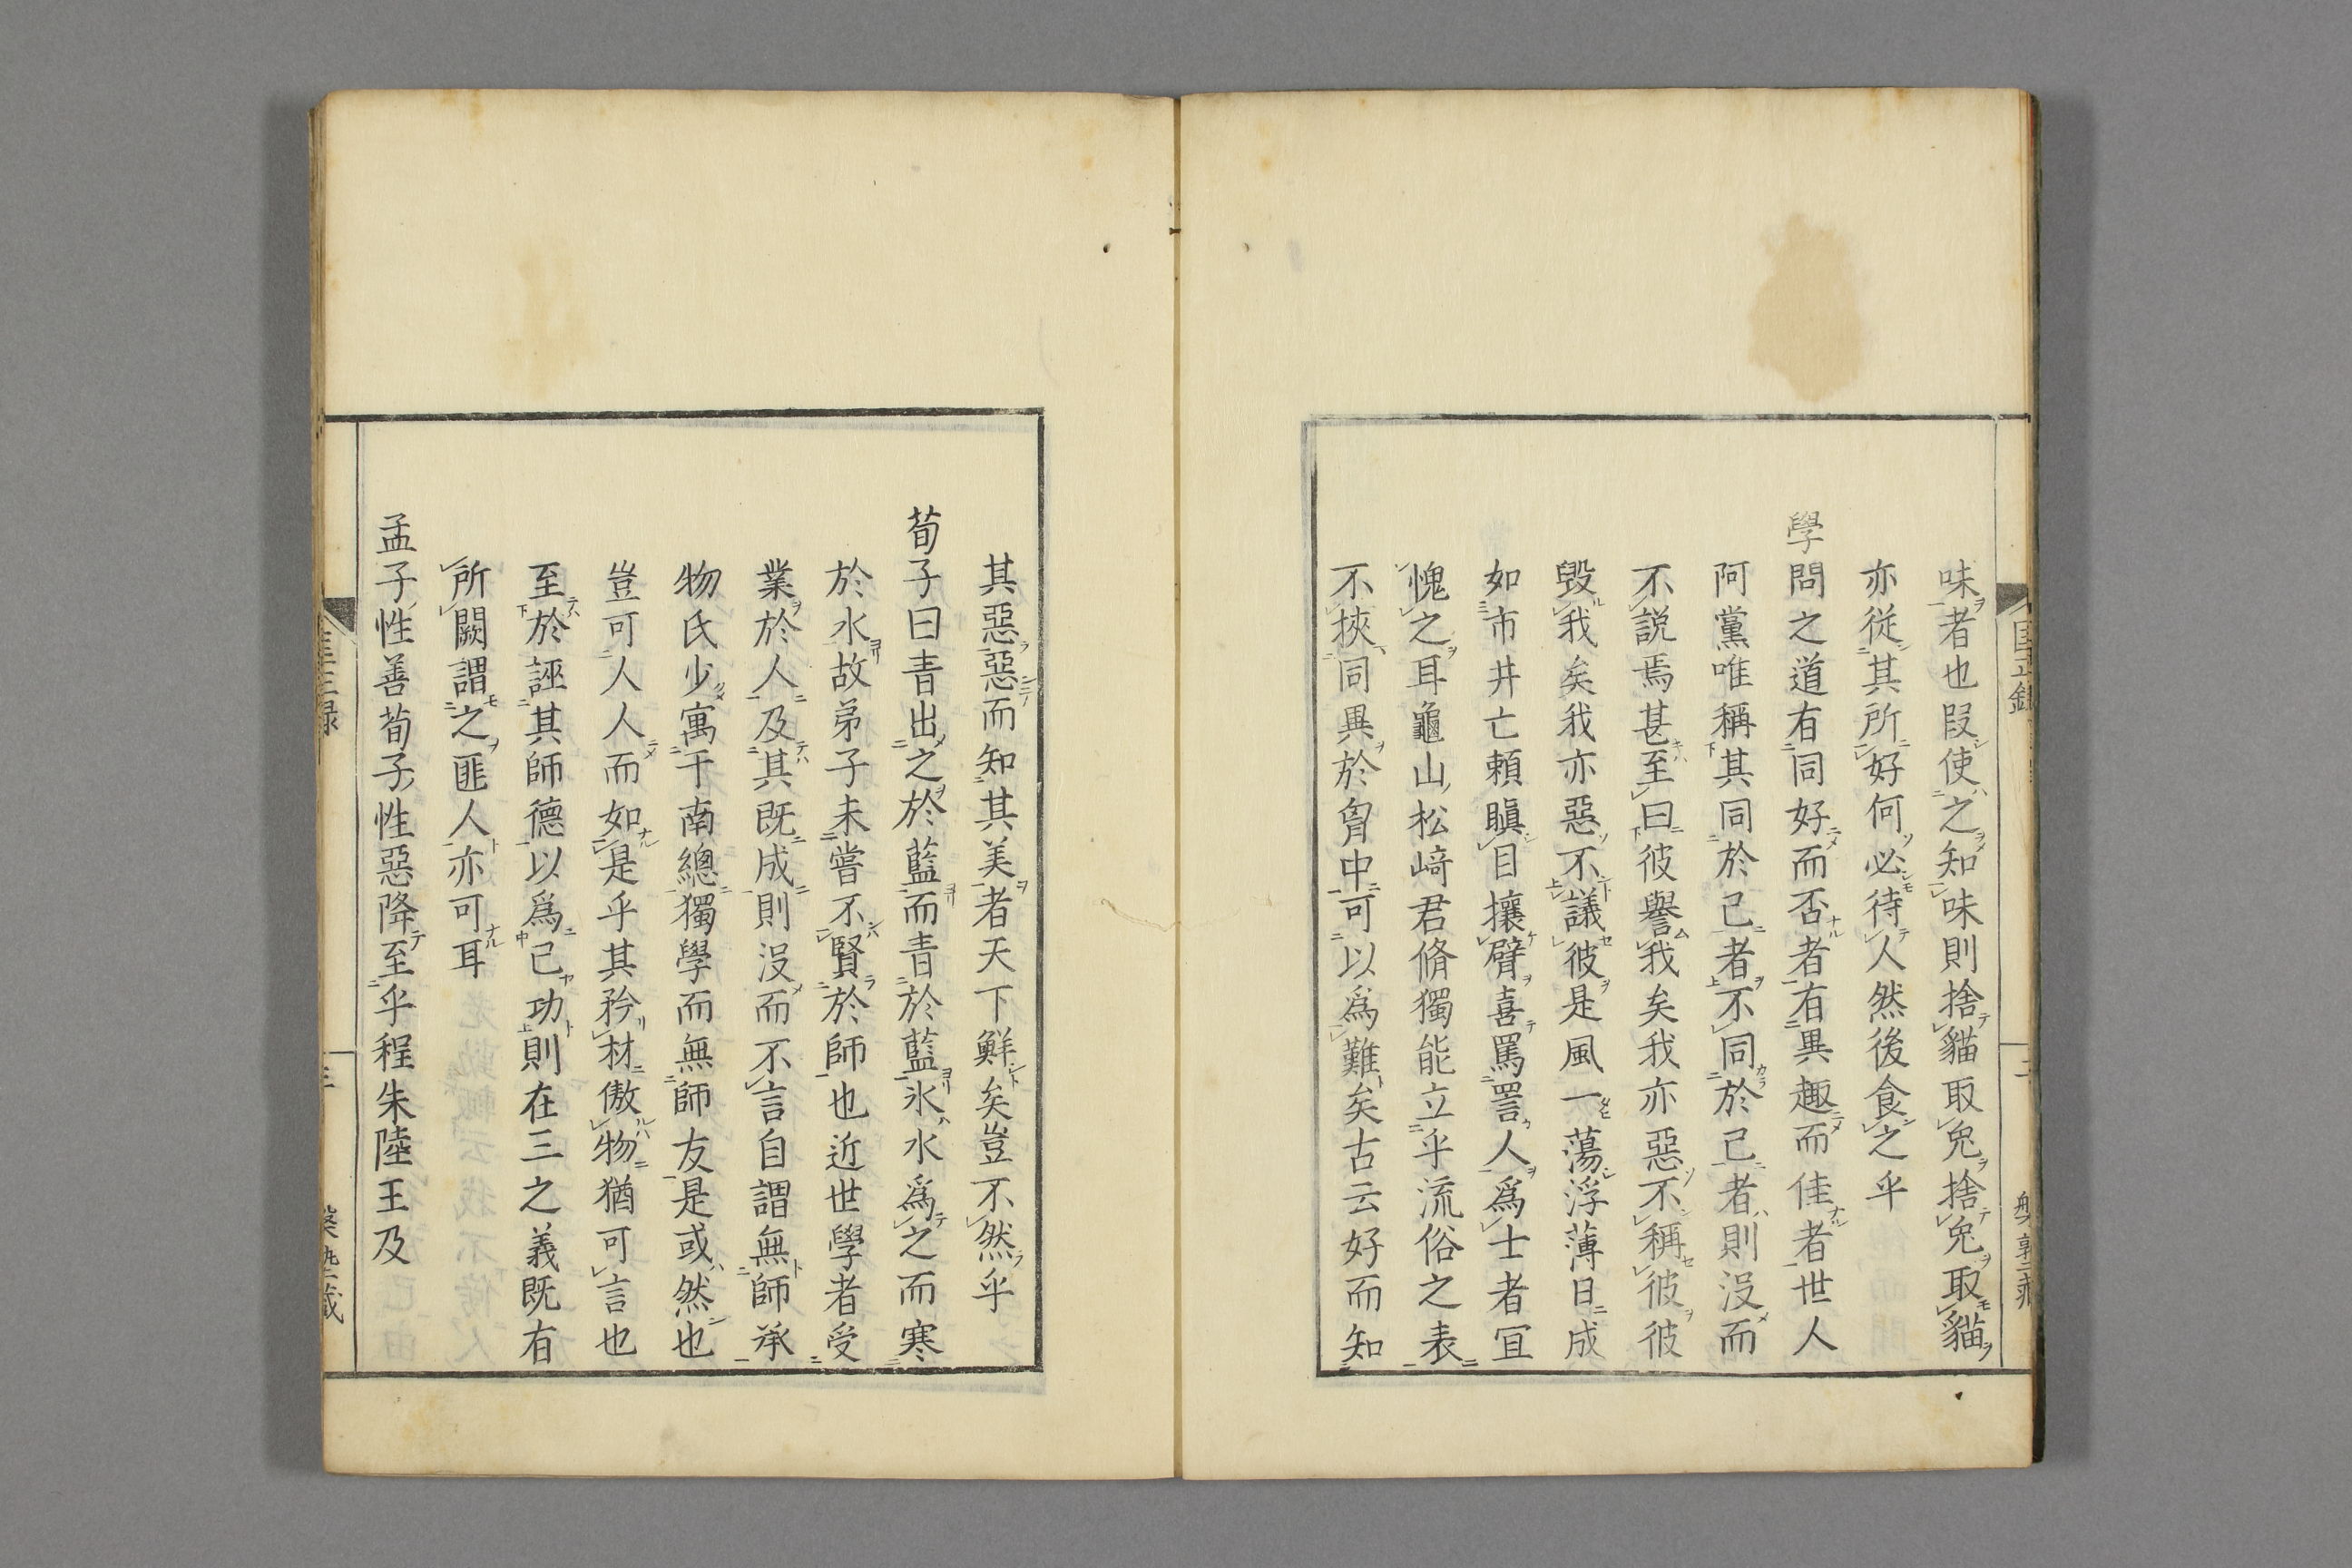 味者也叚使之知味則捨貓取兔捨兔取貓
亦從其所好何必待人然後食之乎
學問之道有同好而否者有異趣而佳者世人
阿黨唯稱其同於己者不同於己者則沒而
不説焉甚至曰彼譽我矣我亦惡不稱彼彼
毀我矣我亦惡不議彼是風一蕩浮薄日成
如市井亡賴瞋目攘臂喜罵詈人爲士者宜
愧之耳龜山松﨑君脩獨能立乎流俗之表
不挾同異於胷中可以爲難矣古云好而知
其惡惡而知其美者天下鮮矣豈不然乎
荀子曰青出之於藍而青於藍氷水爲之而寒
於水故弟子未嘗不賢於師也近世學者受
業於人及其既成則沒而不言自謂無師承
物氏少寓于南總獨學而無師友是或然也
豈可人人而如是乎其矜材傲物猶可言也
至於誣其師德以爲己功則在三之義既有
所闕謂之匪人亦可耳
孟子性善荀子性惡降至乎程朱陸王及